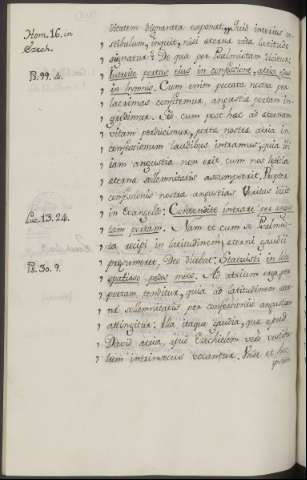 Hom. 16. in
Ezech.
Ps. 99. 4.
Luc. 13. 24.
Ps. 30. 9.
ditatem disparata exponat, quid interius in
stibulum, nisi aeternae vitae latitudo
signatur? De qua per Psalmistam dicitur:
Introite portas ejus in confessione, atria ejus
in hymnis. Cum enim peccata nostra per
lacrimas confitemur, angusta portam in-
gredimur. Sed cum post hac ad aeternam
vitam perducimur, portae nostrae atria in
confessionem laudibus intramus, quia
iam angustia non erit cum nos laetitia
aeternae solemnitatis assumpserit. Propter
confessionis nostrae angustias Veritas dicit
in Evangelio: Contendite intrare per angus-
tam portam. Nam et cum se Psalmis-
ta recipi in latitudinem aeterni gaudii
praesumeret, Deo dicebat: Statuisti in loco
spatioso pedes meos. Ad atrium ergo per
portam tenditur, quia ad latitudinem aeter-
nae solemnitatis per confessionis angustiam
attingitur. Ista itaque gaudia, quae apud
David atria, apud Ezechielem vero vestibu-
lum intrinsecus vocantur. Unde et hoc